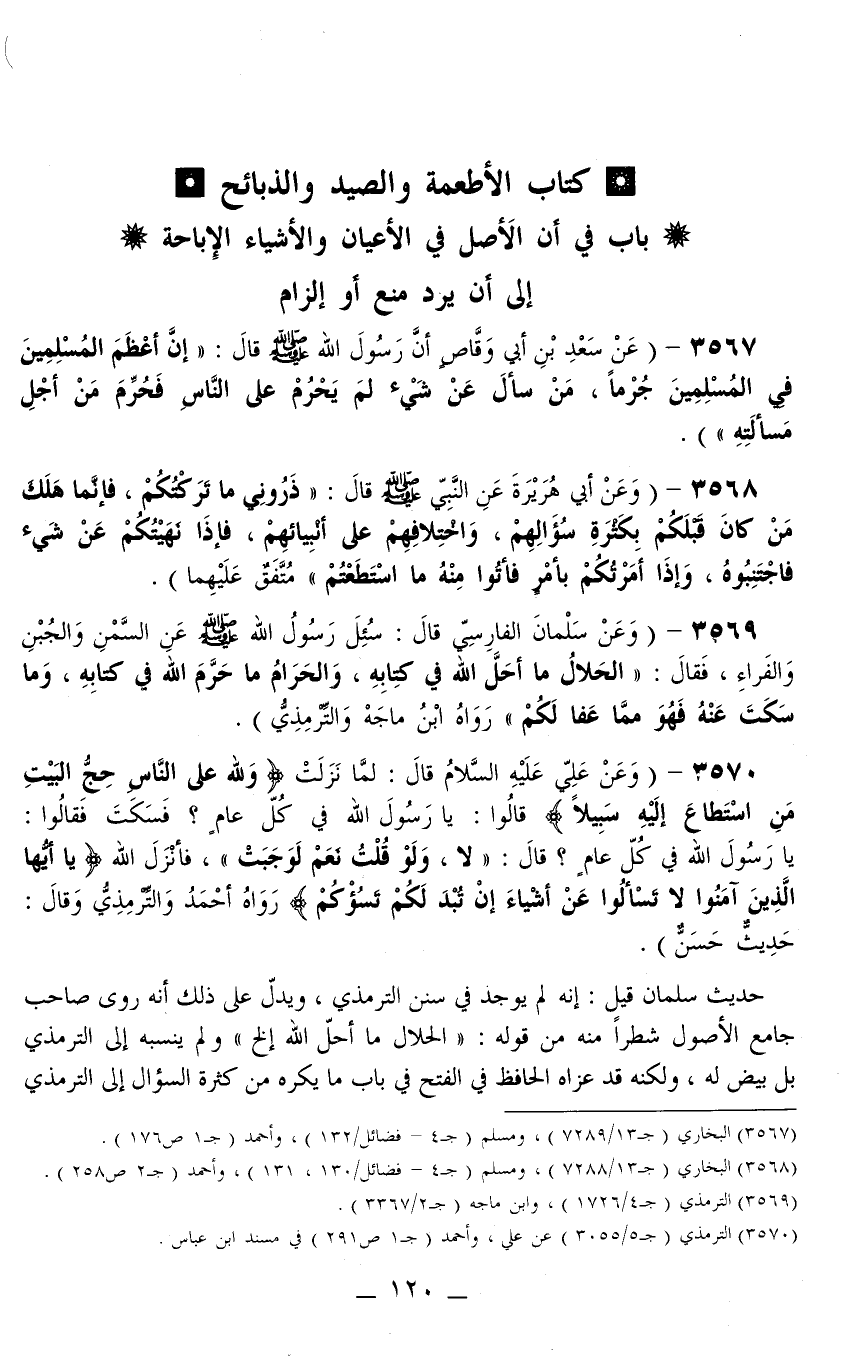 كتاب الأطعمة والصيد والذبائح
باب في أن الَأصل في الأعيان والأشياء الإِباحة
إلى أن يرد منع أو إلزام
٣٥٦٧ – ( عَنْ سَعْدِ بْنِ أبي وَقَّاصٍ أنَّ رَسُولَ الله ﷺ قالَ : « إنَّ أعْظَمَ المُسْلِمِينَ
فِي المُسْلِمِينَ جُرْماً ، مَنْ سألَ عَنْ شَيْء لمَ يَحْرُمْ على النَّاسِ فَحُرِّمَ مَنْ أجْلِ
مَسألَتِهِ » ) .
٣٥٦٨ – ( وَعَنْ أبي هُرَيْرَةَ عَنِ النَّبِيّ ﷺ قالَ : « ذَرُونِي ما تَرَكْتُكُمْ ، فإنَّما هَلَكَ
مَنْ كانَ قَبْلَكُمْ بِكَثْرَةِ سُؤَالِهِمْ ، وَاخْتِلافِهِمْ على أنْبِيائهِمْ ، فإذَا نَهَيْتُكُمْ عَنْ شَيء
فاجْتَنِبُوهُ ، وَإذَا أمَرْتُكُمْ بأمْرٍ فأتُوا مِنْهُ ما اسْتَطَعْتُمْ » مُتَّفَقٌ عَلَيْهِما ) .
٣٥٦٩ – ( وَعَنْ سَلْمانَ الفارِسِيّ قالَ : سُئِلَ رَسُولُ الله ﷺ عَنِ السَّمْنِ وَالجُبْنِ
وَالفَراءِ ، فَقالَ : « الحَلالُ ما أحَلَّ الله في كتِابِهِ ، وَالحَرَامُ ما حَرَّمَ الله في كتابِهِ ، وَما
سَكَتَ عَنْهُ فَهُوَ ممَّا عَفا لَكُمْ » رَوَاهُ ابْنُ ماجَهْ وَالتِّرمِذِيُّ ) .
٣٥٧٠ – ( وَعَنْ عَلِيّ عَلَيْهِ السَّلامُ قالَ : لمَّا نَزَلَتْ ﴿ وَلله على النَّاسِ حِجُّ البَيْتِ
مَنِ اسْتَطاعَ إلَيْهِ سَبِيلاً ﴾ قالُوا : يا رَسُولَ الله في كُلّ عامٍ ؟ فَسَكَتَ فَقالُوا :
يا رَسُولَ الله في كُلّ عامٍ ؟ قالَ : « لا ، وَلَوْ قُلْتُ نَعَمْ لَوَجَبَتْ » ، فأنْزَلَ الله ﴿ يا أيُّها
الَّذِينَ آمَنُوا لا تَسْألُوا عَنْ أشْياءَ إنْ تُبْدَ لَكُمْ تَسُؤْكُمْ ﴾ رَوَاهُ أحْمَدُ وَالتِّرْمِذِيُّ وَقالَ :
حَدِيثٌ حَسَنٌ ) .
حديث سلمان قيل : إنه لم يوجد في سنن الترمذي ، ويدلّ على ذلك أنه روى صاحب
جامع الأصول شطراً منه من قوله : « الحلال ما أحلّ الله إلخ » ولم ينسبه إلى الترمذي
بل بيض له ، ولكنه قد عزاه الحافظ في الفتح في باب ما يكره من كثرة السؤال إلى الترمذي
(٣٥٦٧) البخاري ( جـ١٣/٧٢٨٩ ) ، ومسلم ( جـ٤ – فضائل/١٣٢ ) ، وأحمد ( جـ١ ص١٧٦ ) .
(٣٥٦٨) البخاري ( جـ١٣/٧٢٨٨ ) ، ومسلم ( جـ٤ – فضائل/١٣٠ ، ١٣١ ) ، وأحمد ( جـ٢ ص٢٥٨ ) .
(٣٥٦٩) الترمذي ( جـ٤/١٧٢٦ ) ، وابن ماجه ( جـ٢/٣٣٦٧ ) .
(٣٥٧٠) الترمذي ( جـ٥/٣٠٥٥ ) عن علي ، وأحمد ( جـ١ ص٢٩١ ) في مسند ابن عباس .
– ١٢٠ –